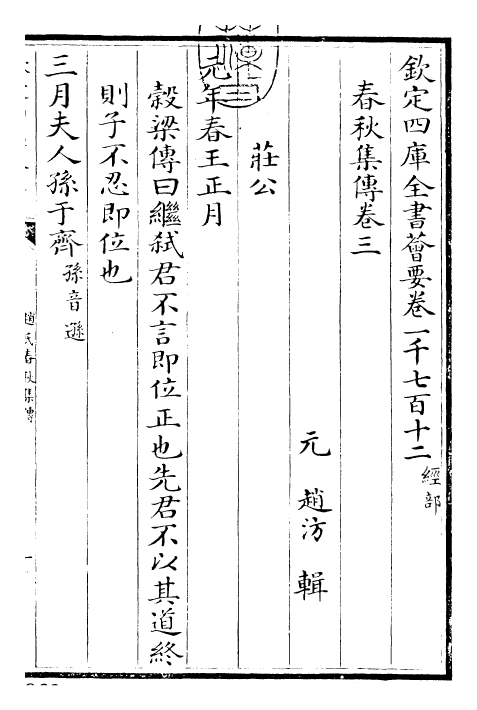 欽定四庫全書薈要卷一千七百十二 經部
春秋集傳卷三
元 趙汸 輯
莊公
元年春王正月
穀梁傳曰繼弑君不言即位正也先君不以其道終
則子不忍即位也
三月夫人孫于齊 孫音遜
趙氏春秋集傳
一